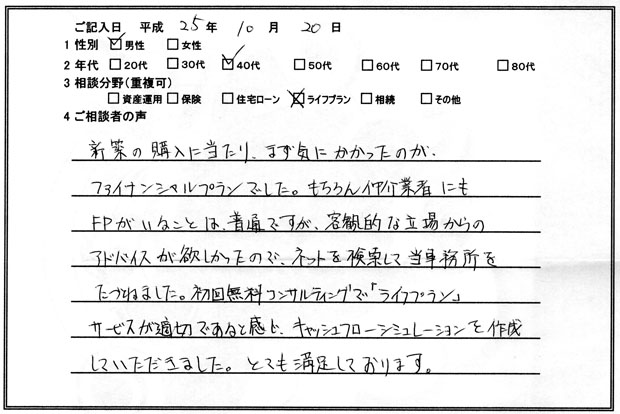 ご記入日 平成 25年 10月 20日
1 性別 ☑男性 □女性
2 年代 □20代 □30代 ☑40代 □50代 □60代 □70代 □80代
3 相談分野(重複可)
□資産運用 □保険 □住宅ローン ☒ライフプラン □相続 □その他
4 ご相談者の声
新築の購入に当たり、まず気にかかったのが、
ファイナンシャルプランでした。もちろん仲介業者にも
FPがいることは、普通ですが、客観的な立場からの
アドバイスが欲しかったので、ネットを検索して当事務所を
たづねました。初回無料コンサルティングで「ライフプラン」
サービスが適切であると感じ、キャッシュフローシミュレーションを作成
していただきました。とても満足しております。